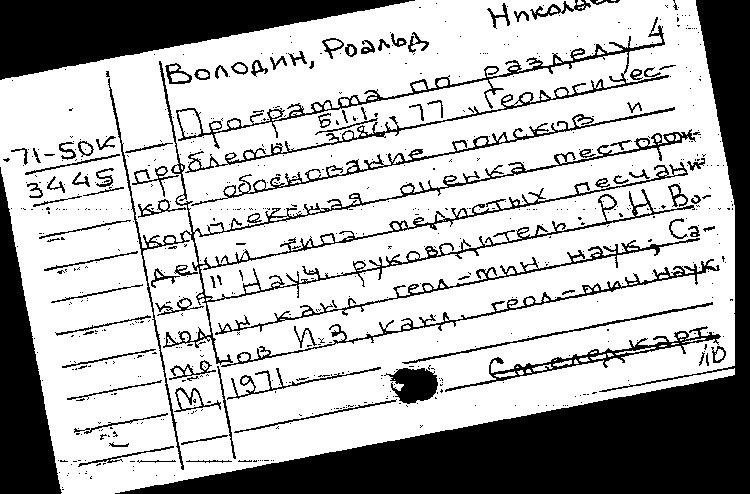 Володин, Роальд Николаев
71-50К
3445
Программа по разделу 4
проблемы 5.1.1. 308(1) 77 „Геологичес-
кое обоснование поисков и
комплексная оценка месторож-
дений типа медистых песчани-
ков". Науч. руководитель: Р.Н.Во-
лодин, канд. геол.-мин. наук; Са-
монов И.З., канд. геол.-мин. наук.
М., 1971
См. след. карт.